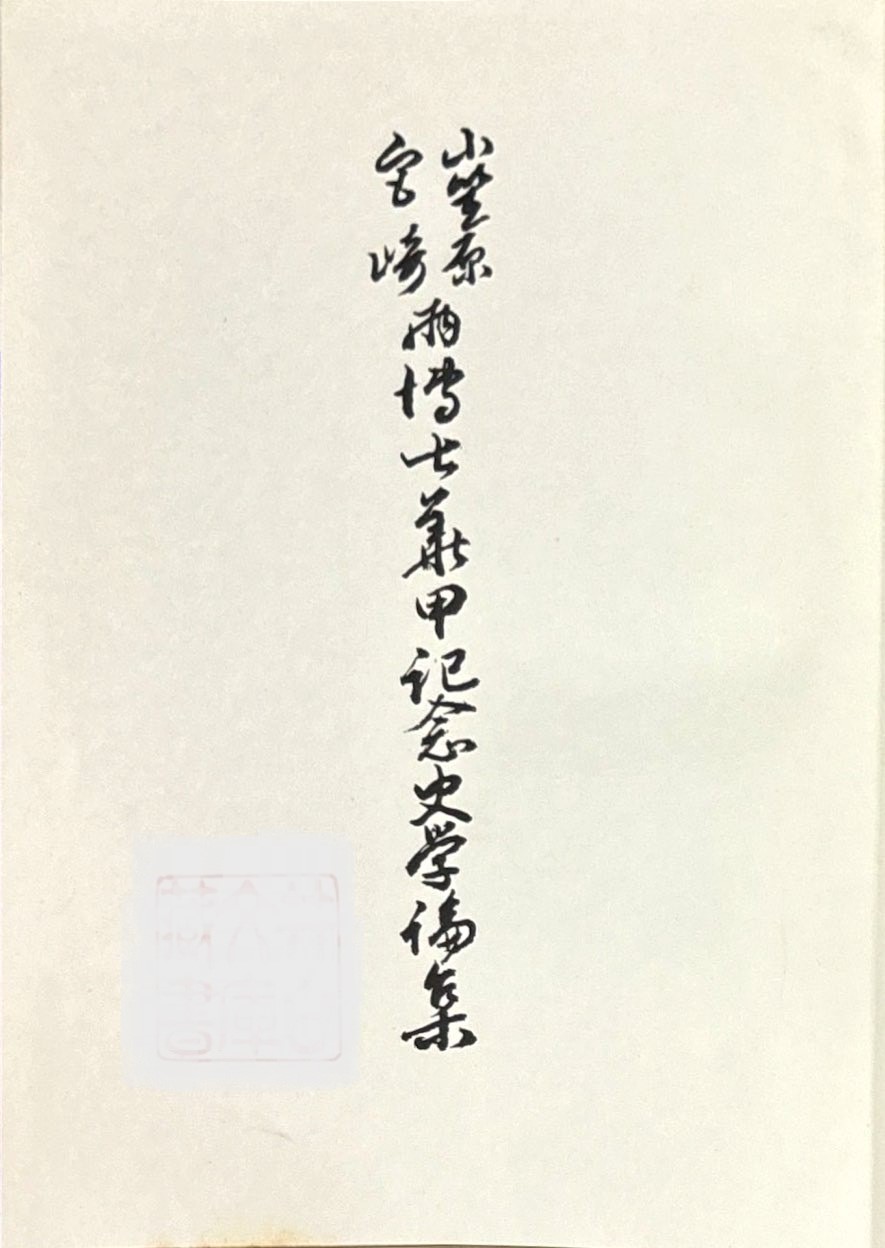 小笠原
宮崎
両博士華甲記念史学論集